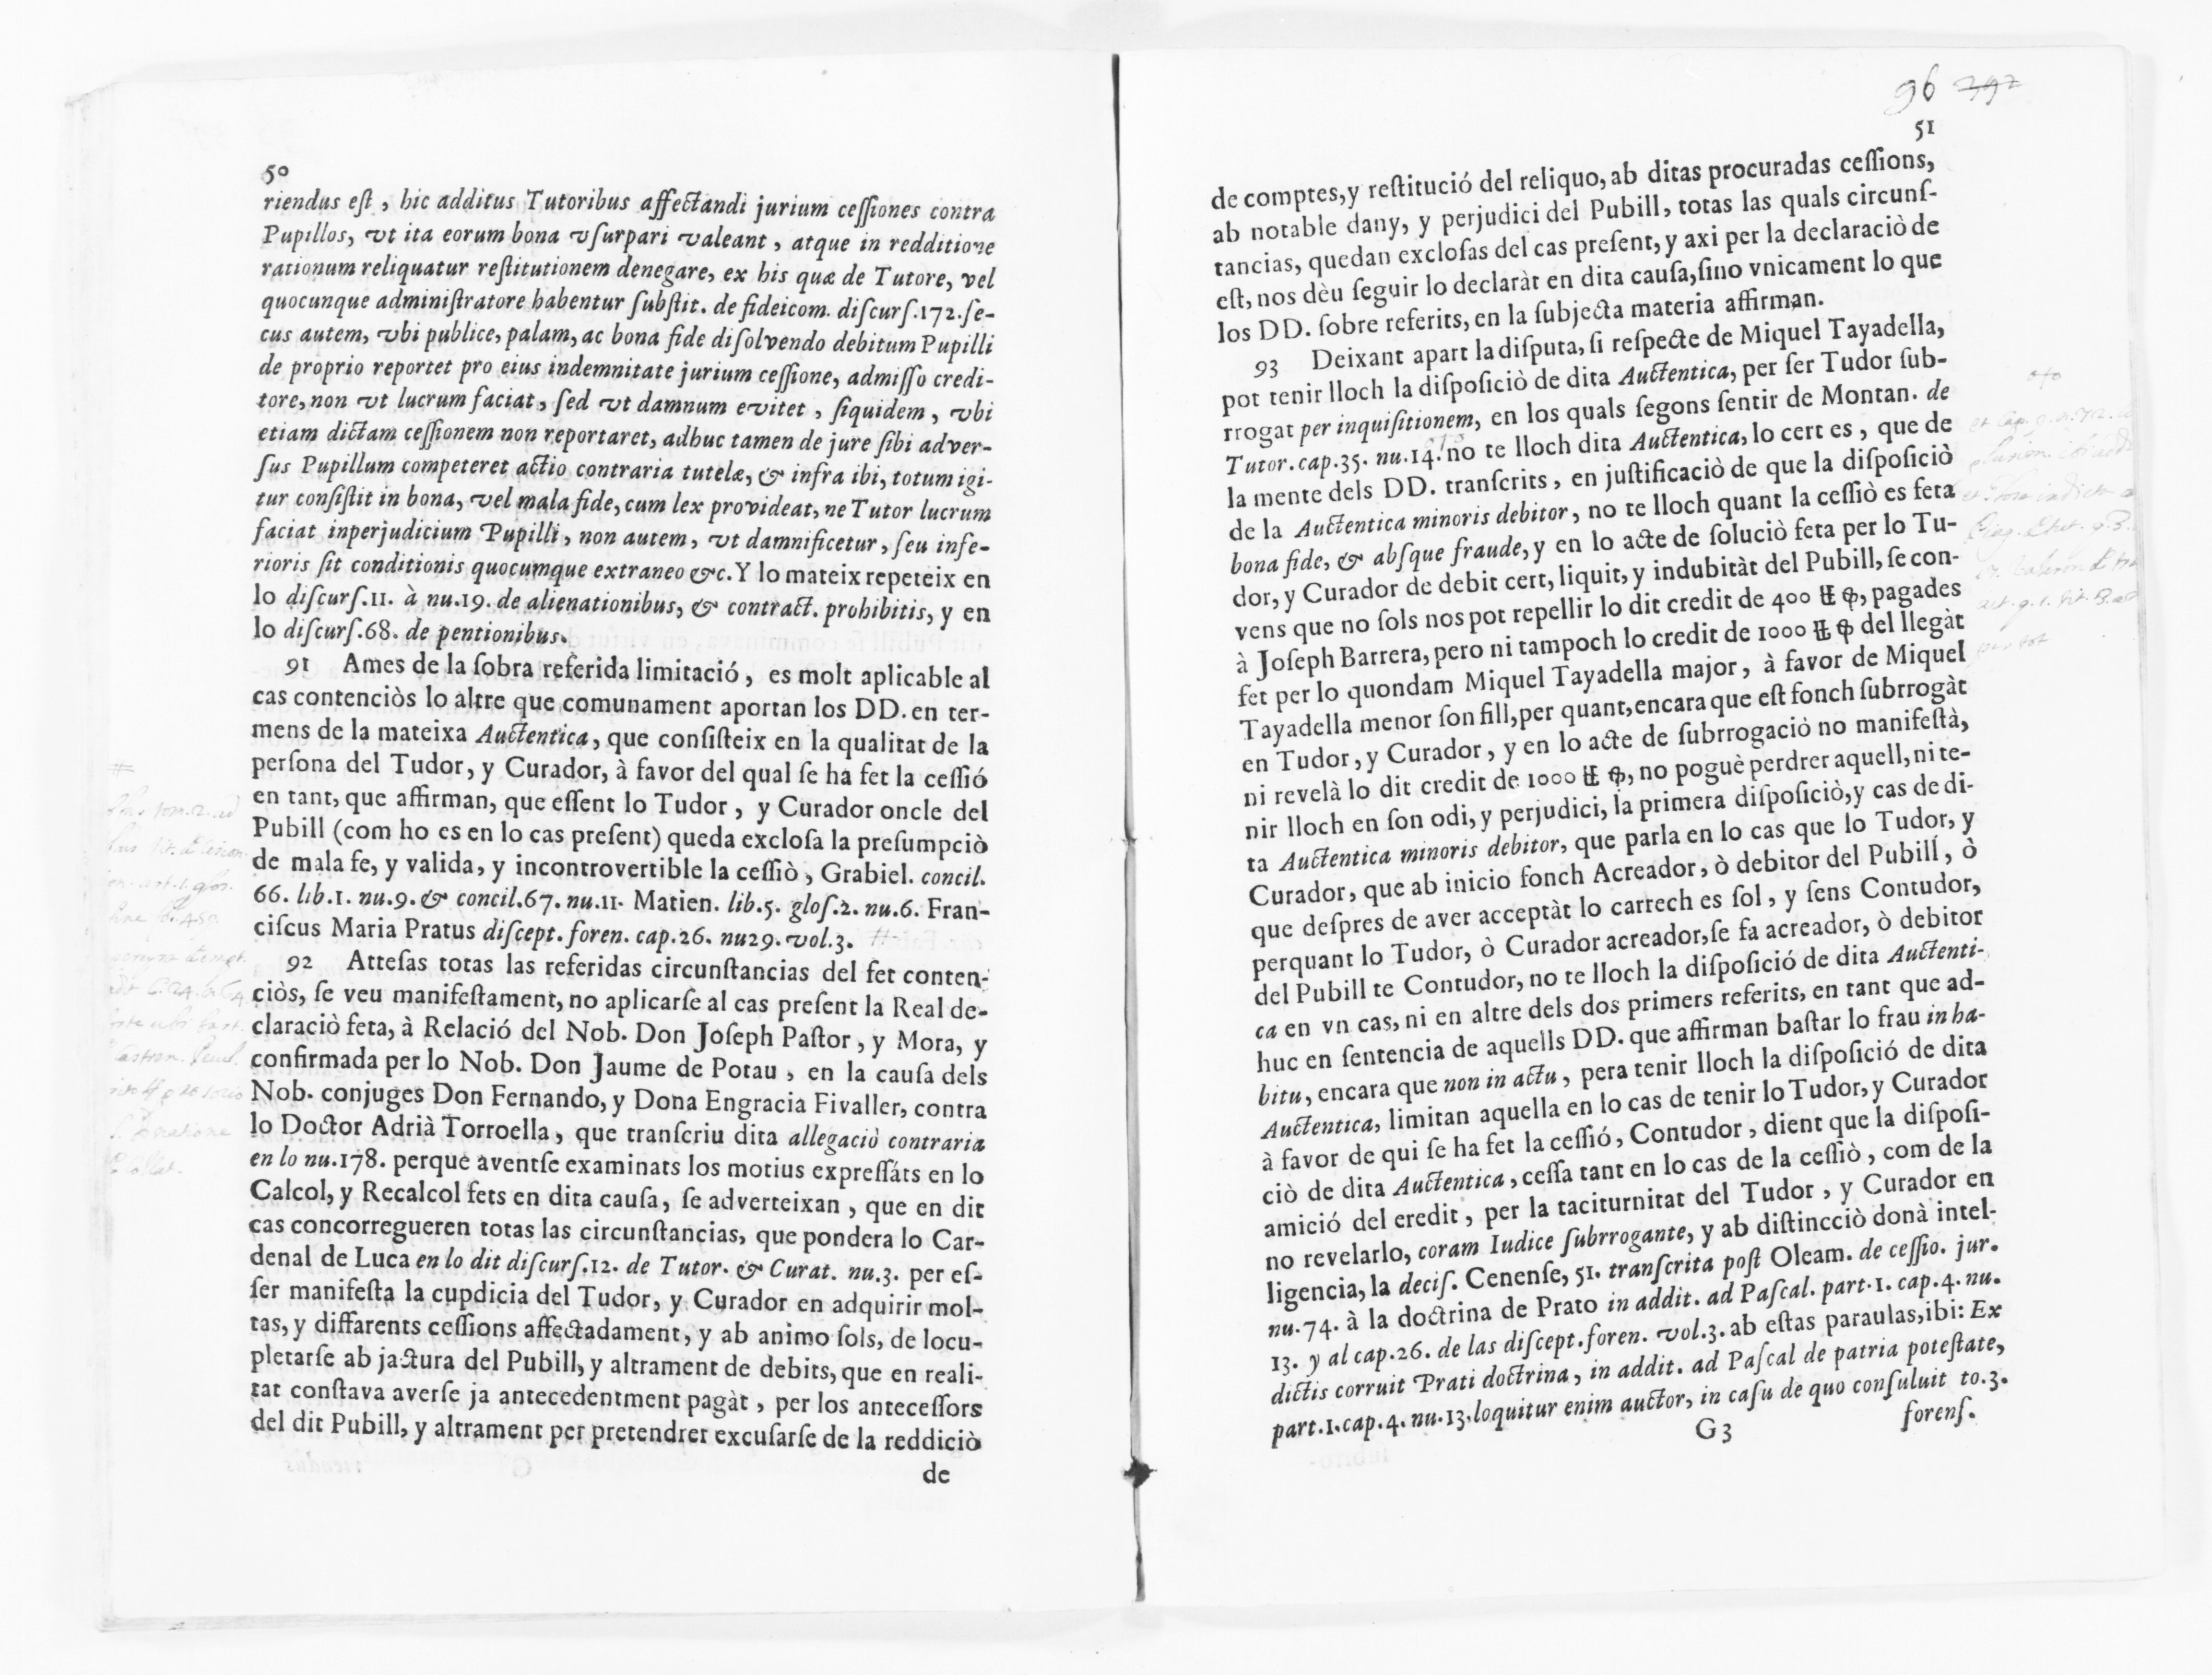 50
riendus eſt, hic additus Tutoribus affectandi jurium ceſſiones contra
Pupillos, vt ita eorum bona vſurpari valeant, atque in redditione
rationum reliquatur reſtitutionem denegare, ex his quæ de Tutore, vel
quocunque adminiſtratore habentur ſubſtit. de fideicom. diſcurſ.172.ſe-
cus autem, vbi publice, palam, ac bona fide diſolvendo debitum Pupilli
de proprio reportet pro eius indemnitate jurium ceſſione, admiſſo credi-
tore, non vt lucrum faciat, ſed vt damnum evitet, ſiquidem, vbi
etiam dictam ceſſionem non reportaret, adhuc tamen de jure ſibi adver-
ſus Pupillum competeret actio contraria tutelæ, & infra ibi, totum igi-
tur conſiſtit in bona, vel mala fide, cum lex provideat, ne Tutor lucrum
faciat inperjudicium Pupilli, non autem, vt damnificetur, ſeu infe-
rioris ſit conditionis quocumque extraneo &c. Y lo mateix repeteix en
lo diſcurſ.11. à nu.19. de alienationibus, & contract. prohibitis, y en
lo diſcurſ.68. de pentionibus.
91 Ames de la ſobra referida limitació, es molt aplicable al
cas contenciòs lo altre que comunament aportan los DD. en ter-
mens de la mateixa Auctentica, que conſiſteix en la qualitat de la
perſona del Tudor, y Curador, à favor del qual ſe ha fet la ceſſió
en tant, que affirman, que eſſent lo Tudor, y Curador oncle del
Pubill (com ho es en lo cas preſent) queda excloſa la preſumpciò
de mala fe, y valida, y incontrovertible la ceſſiò, Grabiel. concil.
66. lib.1. nu.9. & concil.67. nu.11. Matien. lib.5. gloſ.2. nu.6. Fran-
ciſcus Maria Pratus diſcept. foren. cap.26. nu29. vol.3.
92 Atteſas totas las referidas circunſtancias del fet conten-
ciòs, ſe veu manifeſtament, no aplicarſe al cas preſent la Real de-
claraciò feta, à Relació del Nob. Don Joſeph Paſtor, y Mora, y
confirmada per lo Nob. Don Jaume de Potau, en la cauſa dels
Nob. conjuges Don Fernando, y Dona Engracia Fivaller, contra
lo Doctor Adrià Torroella, que tranſcriu dita allegaciò contraria
en lo nu.178. perquè aventſe examinats los motius expreſſáts en lo
Calcol, y Recalcol fets en dita cauſa, ſe adverteixan, que en dit
cas concorregueren totas las circunſtancias, que pondera lo Car-
denal de Luca en lo dit diſcurſ.12. de Tutor. & Curat. nu.3. per eſ-
ſer manifeſta la cupdicia del Tudor, y Curador en adquirir mol-
tas, y diffarents ceſſions affectadament, y ab animo ſols, de locu-
pletarſe ab jactura del Pubill, y altrament de debits, que en reali-
tat conſtava averſe ja antecedentment pagàt, per los anteceſſors
del dit Pubill, y altrament per pretendrer excuſarſe de la reddiciò
de
96
51
de comptes, y reſtitució del reliquo, ab ditas procuradas ceſſions,
ab notable dany, y perjudici del Pubill, totas las quals circunſ-
tancias, quedan excloſas del cas preſent, y axi per la declaraciò de
eſt, nos dèu ſeguir lo declaràt en dita cauſa, ſino vnicament lo que
los DD. ſobre referits, en la ſubjecta materia affirman.
93 Deixant apart la diſputa, ſi reſpecte de Miquel Tayadella,
pot tenir lloch la diſpoſiciò de dita Auctentica, per ſer Tudor ſub-
rrogat per inquiſitionem, en los quals ſegons ſentir de Montan. de
Tutor. cap.35. nu.14. no te lloch dita Auctentica, lo cert es, que de
la mente dels DD. tranſcrits, en juſtificaciò de que la diſpoſiciò
de la Auctentica minoris debitor, no te lloch quant la ceſſiò es feta
bona fide, & abſque fraude, y en lo acte de ſoluciò feta per lo Tu-
dor, y Curador de debit cert, liquit, y indubitàt del Pubill, ſe con-
vens que no ſols nos pot repellir lo dit credit de 400 , pagades
à Joſeph Barrera, pero ni tampoch lo credit de 1000 del llegàt
fet per lo quondam Miquel Tayadella major, à favor de Miquel
Tayadella menor ſon fill, per quant, encara que eſt fonch ſubrrogàt
en Tudor, y Curador, y en lo acte de ſubrrogaciò no manifeſtà,
ni revelà lo dit credit de 1000 , no poguè perdrer aquell, ni te-
nir lloch en ſon odi, y perjudici, la primera diſpoſiciò, y cas de di-
ta Auctentica minoris debitor, que parla en lo cas que lo Tudor, y
Curador, que ab inicio fonch Acreador, ò debitor del Pubill, ò
que deſpres de aver acceptàt lo carrech es ſol, y ſens Contudor,
perquant lo Tudor, ò Curador acreador, ſe fa acreador, ò debitor
del Pubill te Contudor, no te lloch la diſpoſició de dita Auctenti-
ca en vn cas, ni en altre dels dos primers referits, en tant que ad-
huc en ſentencia de aquells DD. que affirman baſtar lo frau in ha-
bitu, encara que non in actu, pera tenir lloch la diſpoſició de dita
Auctentica, limitan aquella en lo cas de tenir lo Tudor, y Curador
à favor de qui ſe ha fet la ceſſió, Contudor, dient que la diſpoſi-
ciò de dita Auctentica, ceſſa tant en lo cas de la ceſſiò, com de la
amició del eredit, per la taciturnitat del Tudor, y Curador en
no revelarlo, coram Iudice ſubrrogante, y ab diſtincciò donà intel-
ligencia, la deciſ. Cenenſe, 51. tranſcrita poſt Oleam. de ceſſio. jur.
nu.74. à la doctrina de Prato in addit. ad Paſcal. part.1. cap.4. nu.
13. y al cap.26. de las diſcept. foren. vol.3. ab eſtas paraulas, ibi: Ex
dictis corruit Prati doctrina, in addit. ad Paſcal de patria poteſtate,
part.1. cap.4. nu.13. loquitur enim auctor, in caſu de quo conſuluit to.3.
G3
forenſ.